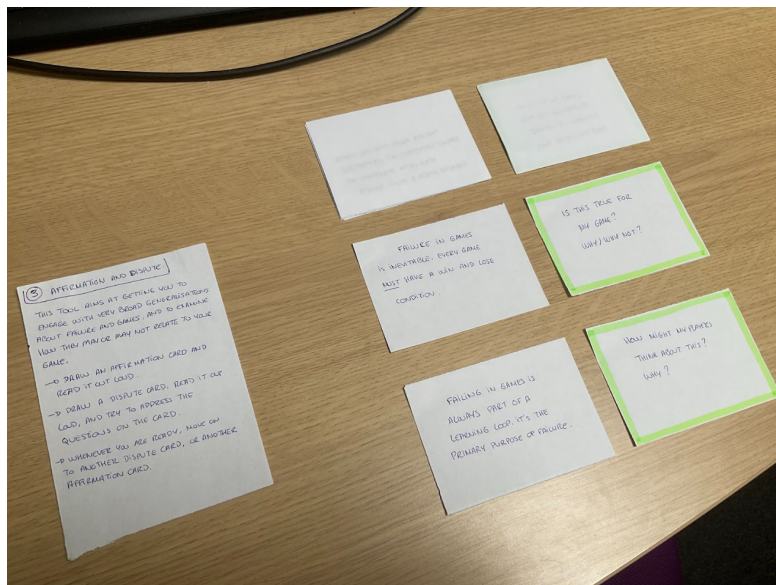 3 AFFIRMATION AND DISPUTE
THIS TOOL AIMS AT GETTING YOU TO
ENGAGE WITH VERY BROAD GENERALISATIONS
ABOUT FAILURE AND GAMES, AND TO EXAMINE
HOW THEY MAY OR MAY NOT RELATE TO YOUR
GAME.
→ DRAW AN AFFIRMATION CARD AND
READ IT OUT LOUD.
→ DRAW A DISPUTE CARD, READ IT OUT
LOUD, AND TRY TO ADDRESS THE
QUESTIONS ON THE CARD.
→ WHENEVER YOU ARE READY, MOVE ON
TO ANOTHER DISPUTE CARD, OR ANOTHER
AFFIRMATION CARD.
FAILURE IN GAMES
IS INEVITABLE. EVERY GAME
MUST HAVE A WIN AND LOSE
CONDITION.
IS THIS TRUE FOR
MY GAME?
WHY/WHY NOT?
FAILING IN GAMES IS
ALWAYS PART OF A
LEARNING LOOP. IT'S THE
PRIMARY PURPOSE OF FAILURE.
HOW MIGHT MY PLAYERS
THINK ABOUT THIS?
WHY?